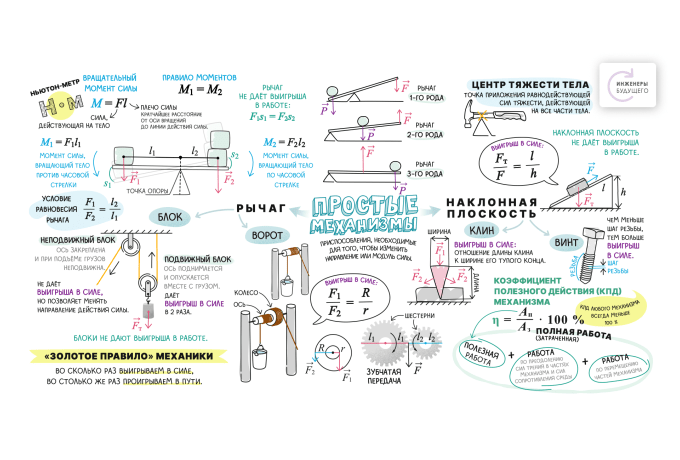 НЬЮТОН-МЕТР
Н·М
ВРАЩАТЕЛЬНЫЙ
МОМЕНТ СИЛЫ
M = Fl
СИЛА,
ДЕЙСТВУЮЩАЯ НА ТЕЛО
ПЛЕЧО СИЛЫ
КРАТЧАЙШЕЕ РАССТОЯНИЕ
ОТ ОСИ ВРАЩЕНИЯ
ДО ЛИНИИ ДЕЙСТВИЯ СИЛЫ.
ПРАВИЛО МОМЕНТОВ
M₁ = M₂
РЫЧАГ
НЕ ДАЁТ ВЫИГРЫША
В РАБОТЕ:
F₁s₁ = F₂s₂
M₁ = F₁l₁
МОМЕНТ СИЛЫ,
ВРАЩАЮЩИЙ ТЕЛО
ПРОТИВ ЧАСОВОЙ
СТРЕЛКИ
l₁ l₂
s₁ s₂
F₁ F₂
ТОЧКА ОПОРЫ
M₂ = F₂l₂
МОМЕНТ СИЛЫ,
ВРАЩАЮЩИЙ ТЕЛО
ПО ЧАСОВОЙ
СТРЕЛКЕ
F
P
РЫЧАГ
1-ГО РОДА
F
P
РЫЧАГ
2-ГО РОДА
F
P
РЫЧАГ
3-ГО РОДА
ЦЕНТР ТЯЖЕСТИ ТЕЛА
ТОЧКА ПРИЛОЖЕНИЯ РАВНОДЕЙСТВУЮЩЕЙ
СИЛ ТЯЖЕСТИ, ДЕЙСТВУЮЩЕЙ
НА ВСЕ ЧАСТИ ТЕЛА.
ИНЖЕНЕРЫ
БУДУЩЕГО
НАКЛОННАЯ ПЛОСКОСТЬ
НЕ ДАЁТ ВЫИГРЫША
В РАБОТЕ.
ВЫИГРЫШ В СИЛЕ:
Fт / F = l / h
F
l
h
Fт
УСЛОВИЕ
РАВНОВЕСИЯ
РЫЧАГА
F₁ / F₂ = l₂ / l₁
РЫЧАГ
ПРОСТЫЕ
МЕХАНИЗМЫ
ПРИСПОСОБЛЕНИЯ, НЕОБХОДИМЫЕ
ДЛЯ ТОГО, ЧТОБЫ ИЗМЕНИТЬ
НАПРАВЛЕНИЕ ИЛИ МОДУЛЬ СИЛЫ.
НАКЛОННАЯ
ПЛОСКОСТЬ
БЛОК
НЕПОДВИЖНЫЙ БЛОК
ОСЬ ЗАКРЕПЛЕНА
И ПРИ ПОДЪЁМЕ ГРУЗОВ
НЕПОДВИЖНА.
НЕ ДАЁТ
ВЫИГРЫША В СИЛЕ,
НО ПОЗВОЛЯЕТ МЕНЯТЬ
НАПРАВЛЕНИЕ ДЕЙСТВИЯ СИЛЫ.
Fт
ПОДВИЖНЫЙ БЛОК
ОСЬ ПОДНИМАЕТСЯ
И ОПУСКАЕТСЯ
ВМЕСТЕ С ГРУЗОМ.
ДАЁТ
ВЫИГРЫШ В СИЛЕ
В 2 РАЗА.
БЛОКИ НЕ ДАЮТ ВЫИГРЫША В РАБОТЕ.
«ЗОЛОТОЕ ПРАВИЛО» МЕХАНИКИ
ВО СКОЛЬКО РАЗ ВЫИГРЫВАЕМ В СИЛЕ,
ВО СТОЛЬКО ЖЕ РАЗ ПРОИГРЫВАЕМ В ПУТИ.
ВОРОТ
КОЛЕСО
ОСЬ
ВЫИГРЫШ В СИЛЕ:
F₁ / F₂ = R / r
R r
F₂ F₁
ШЕСТЕРНИ
l₁ l₁ l₂ l₂
ЗУБЧАТАЯ
ПЕРЕДАЧА
КЛИН
ШИРИНА
ДЛИНА
F
F₂ F₂
ВЫИГРЫШ В СИЛЕ:
ОТНОШЕНИЕ ДЛИНЫ КЛИНА
К ШИРИНЕ ЕГО ТУПОГО КОНЦА.
ВИНТ
РЕЗЬБА
ШАГ
РЕЗЬБЫ
ЧЕМ МЕНЬШЕ
ШАГ РЕЗЬБЫ,
ТЕМ БОЛЬШЕ
ВЫИГРЫШ
В СИЛЕ.
КОЭФФИЦИЕНТ
ПОЛЕЗНОГО ДЕЙСТВИЯ (КПД)
МЕХАНИЗМА
η = Aп / Aз · 100 %
КПД ЛЮБОГО МЕХАНИЗМА
ВСЕГДА МЕНЬШЕ
100 %
ПОЛНАЯ РАБОТА
(ЗАТРАЧЕННАЯ)
ПОЛЕЗНАЯ
РАБОТА
+
РАБОТА
ПО ПРЕОДОЛЕНИЮ
СИЛ ТРЕНИЯ В ЧАСТЯХ
МЕХАНИЗМА И СИЛ
СОПРОТИВЛЕНИЯ СРЕДЫ
+
РАБОТА
ПО ПЕРЕМЕЩЕНИЮ
ЧАСТЕЙ МЕХАНИЗМА